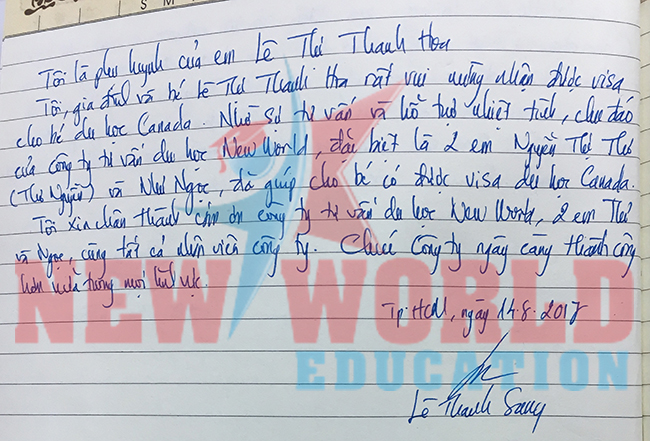 S M
Tôi là phụ huynh của em Lê Thị Thanh Hoa
Tôi, gia đình và bé Lê Thị Thanh Hoa rất vui mừng nhận được visa
cho bé du học Canada. Nhờ sự tư vấn và hỗ trợ nhiệt tình, chu đáo
của công ty tư vấn du học New World, đặc biệt là 2 em Nguyễn Thị Thư
(Thư Nguyễn) và Như Ngọc, đã giúp cho bé có được visa du học Canada.
Tôi xin chân thành cảm ơn công ty tư vấn du học New World, 2 em Thư
và Ngọc, cùng tất cả nhân viên công ty. Chúc Công ty ngày càng thành công
hơn nữa trong mọi lĩnh vực.
Tp.HCM, ngày 14.8.2017
Lê Thanh Sang
NEW WORLD
EDUCATION